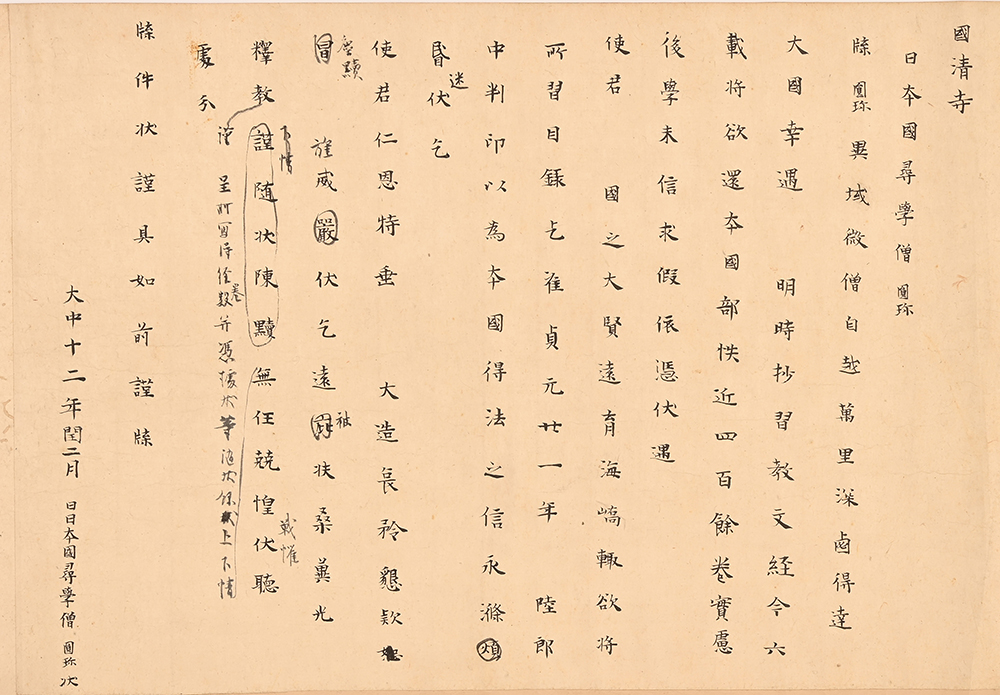 國清寺
日本國尋學僧 圓珎
牒 圓珎 異域微僧自越萬里深鹵得達
大國幸遇 明時抄習教文経今六
載将欲還本國部帙近四百餘卷實慮
後學未信求假依憑伏遇
使君 國之大賢遠育海嶠輙欲将
所習目録乞准貞元廿一年 陸郎
中判印以為本國得法之信永滌煩
昏迷伏乞
使君仁恩特垂 大造哀矜懇欵
冒塵黷 旌威嚴伏乞遠祐扶桑冀光
釋教下情謹随状陳黷無任兢惶戦懼伏聴
處分
謹呈所寫得経卷數并憑據状等随状
牒件状謹具如前謹牒
大中十二年閏二月 日日本國尋學僧 圓珎 状